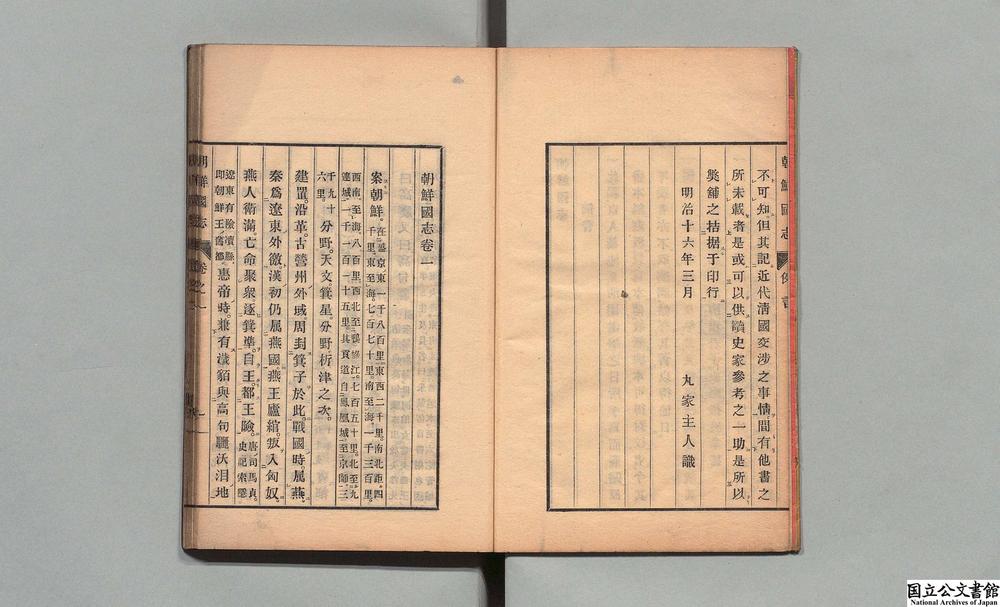 不可知但其記近代淸國交涉之事情間有他書之
所未載者是或可以供讀史家參考之一助是所以
弊舖之拮据于印行
明治十六年三月
丸家主人識
朝鮮國志
朝鮮國志卷一
案朝鮮。在盛京東一千八百里。東西二千里。南北距四
千里。東至海七百七十里。南至海一千三百里。
西南至海八百里。西北至鴨綠江。七百五十里。北至九
連城一千一百一十五里。其貢道自鳳凰城至京師。三
千九十
六里。分野。天文箕星。分野析津之次。
建置沿革。古營州外域。周封箕子於此。戰國時屬燕。
秦爲遼東外徼。漢初仍屬燕國。燕王盧綰。叛入匈奴。
燕人衛滿。亡命聚衆。逐箕準。自王。都王險。唐司馬貞。
史記索隱。
遼東有險瀆縣。
即朝鮮王舊都。惠帝時。兼有濊貊與高句驪沃沮地
朝鮮國志
國立公文書館
National Archives of Japan